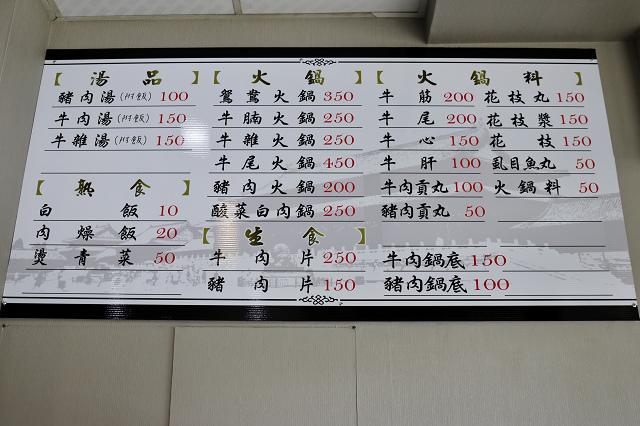 【湯品】
豬肉湯(附飯) 100
牛肉湯(附飯) 150
牛雜湯(附飯) 150
【熟食】
白飯 10
肉燥飯 20
燙青菜 50
【火鍋】
鴛鴦火鍋 350
牛腩火鍋 250
牛雜火鍋 250
牛尾火鍋 450
豬肉火鍋 200
酸菜白肉鍋 250
【生食】
牛肉片 250
豬肉片 150
【火鍋料】
牛筋 200 花枝丸 150
牛尾 200 花枝漿 150
牛心 150 花枝 150
牛肝 100 虱目魚丸 50
牛肉貢丸 100 火鍋料 50
豬肉貢丸 50
牛肉鍋底 150
豬肉鍋底 100